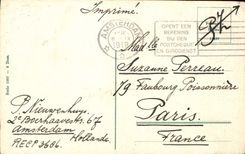 Imprimé.
AMSTERDAM
OPENT EEN
REKENING
BIJ DEN
POSTCHEQUE
EN GIRODIENST
Suzanne Perreau
19 Faubourg Poissonnière
Paris.
France
P. Nieuwenhuys
67
Amsterdam
Hollande